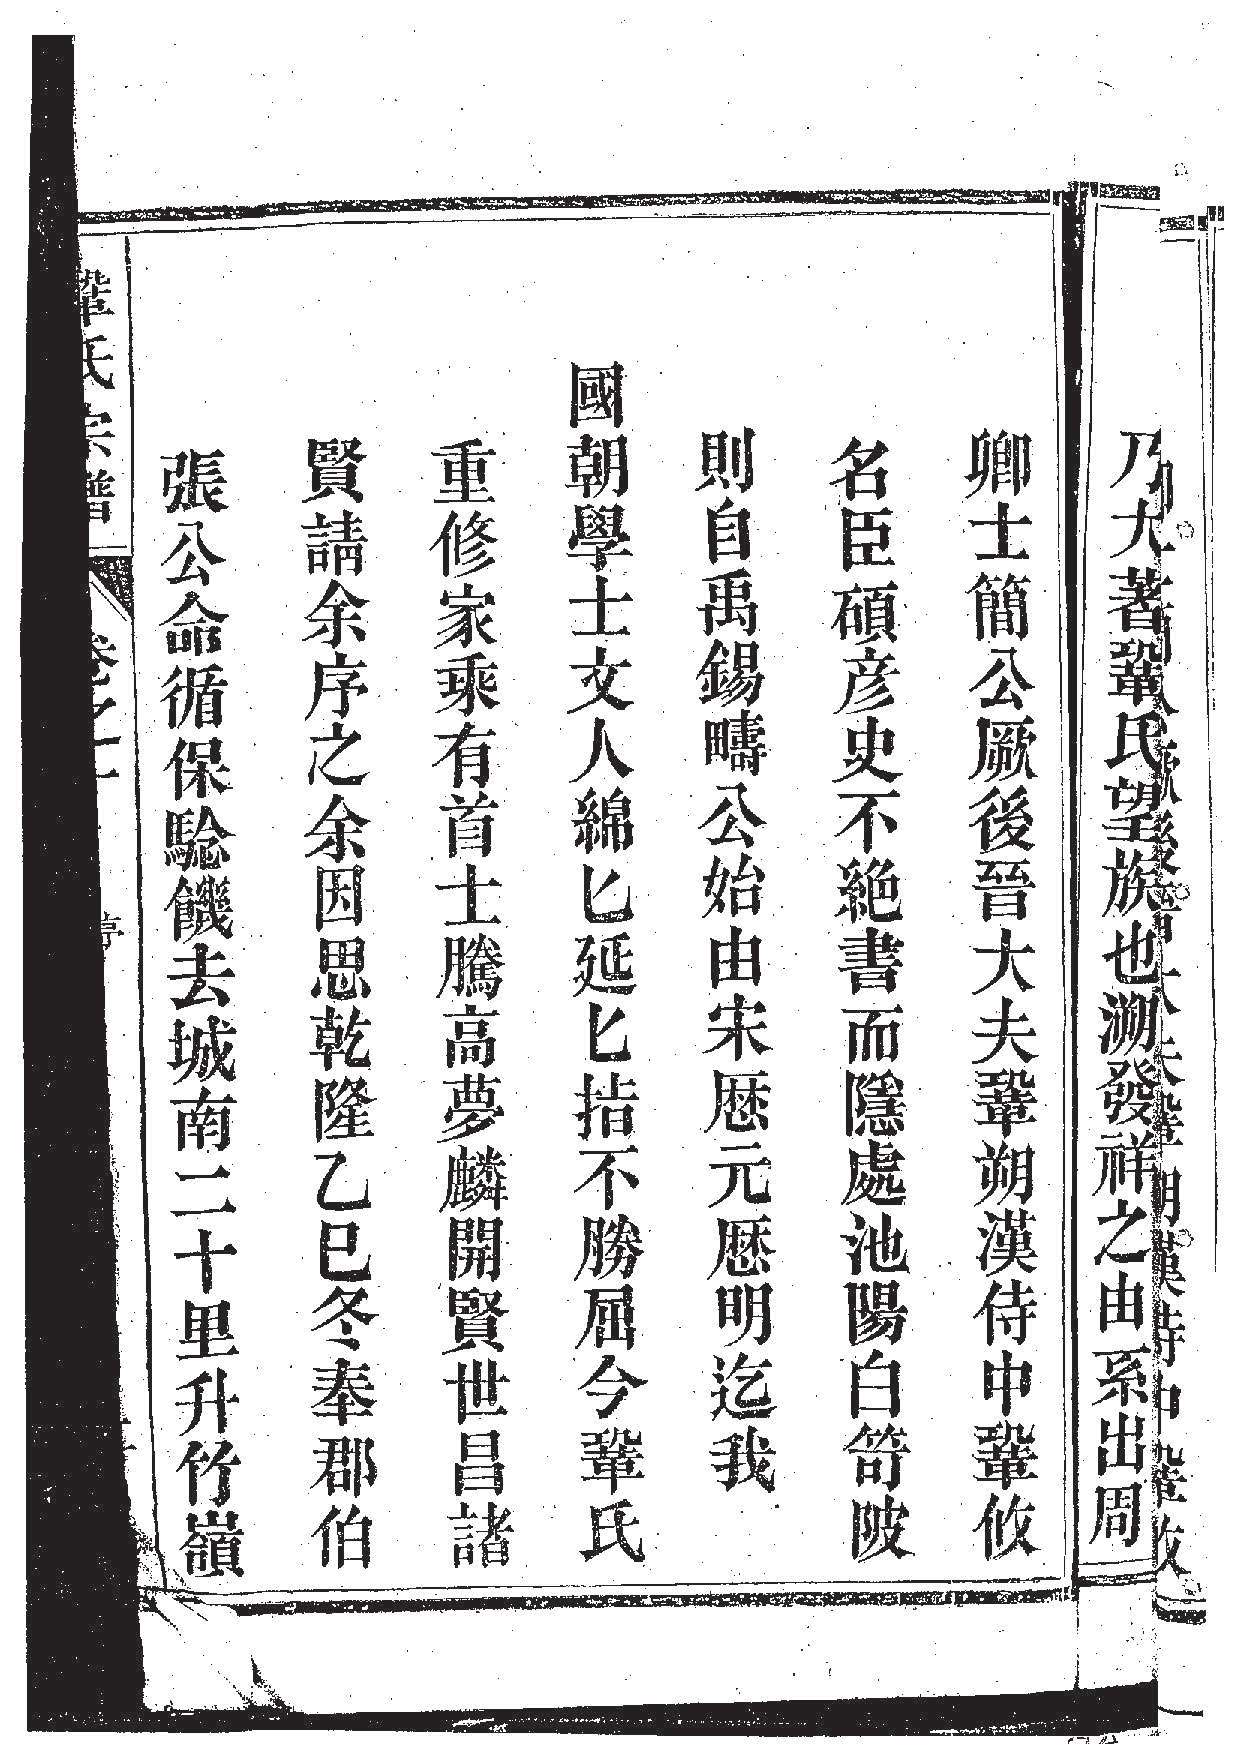 乃大著鞏氏望族也溯發祥之由系出周
卿士簡公厥後晉大夫鞏朔漢侍中鞏攸
名臣碩彦史不絶書而隱處池陽白笴陂
則自禹錫疇公始由宋歴元歴明迄我
國朝學士文人綿匕延匕指不勝屈今鞏氏
重修家乘有首士騰高夢麟開賢世昌諸
賢請余序之余因思乾隆乙巳冬奉郡伯
張公命循保騐饑去城南二十里升竹嶺
鞏氏宗譜
卷之一